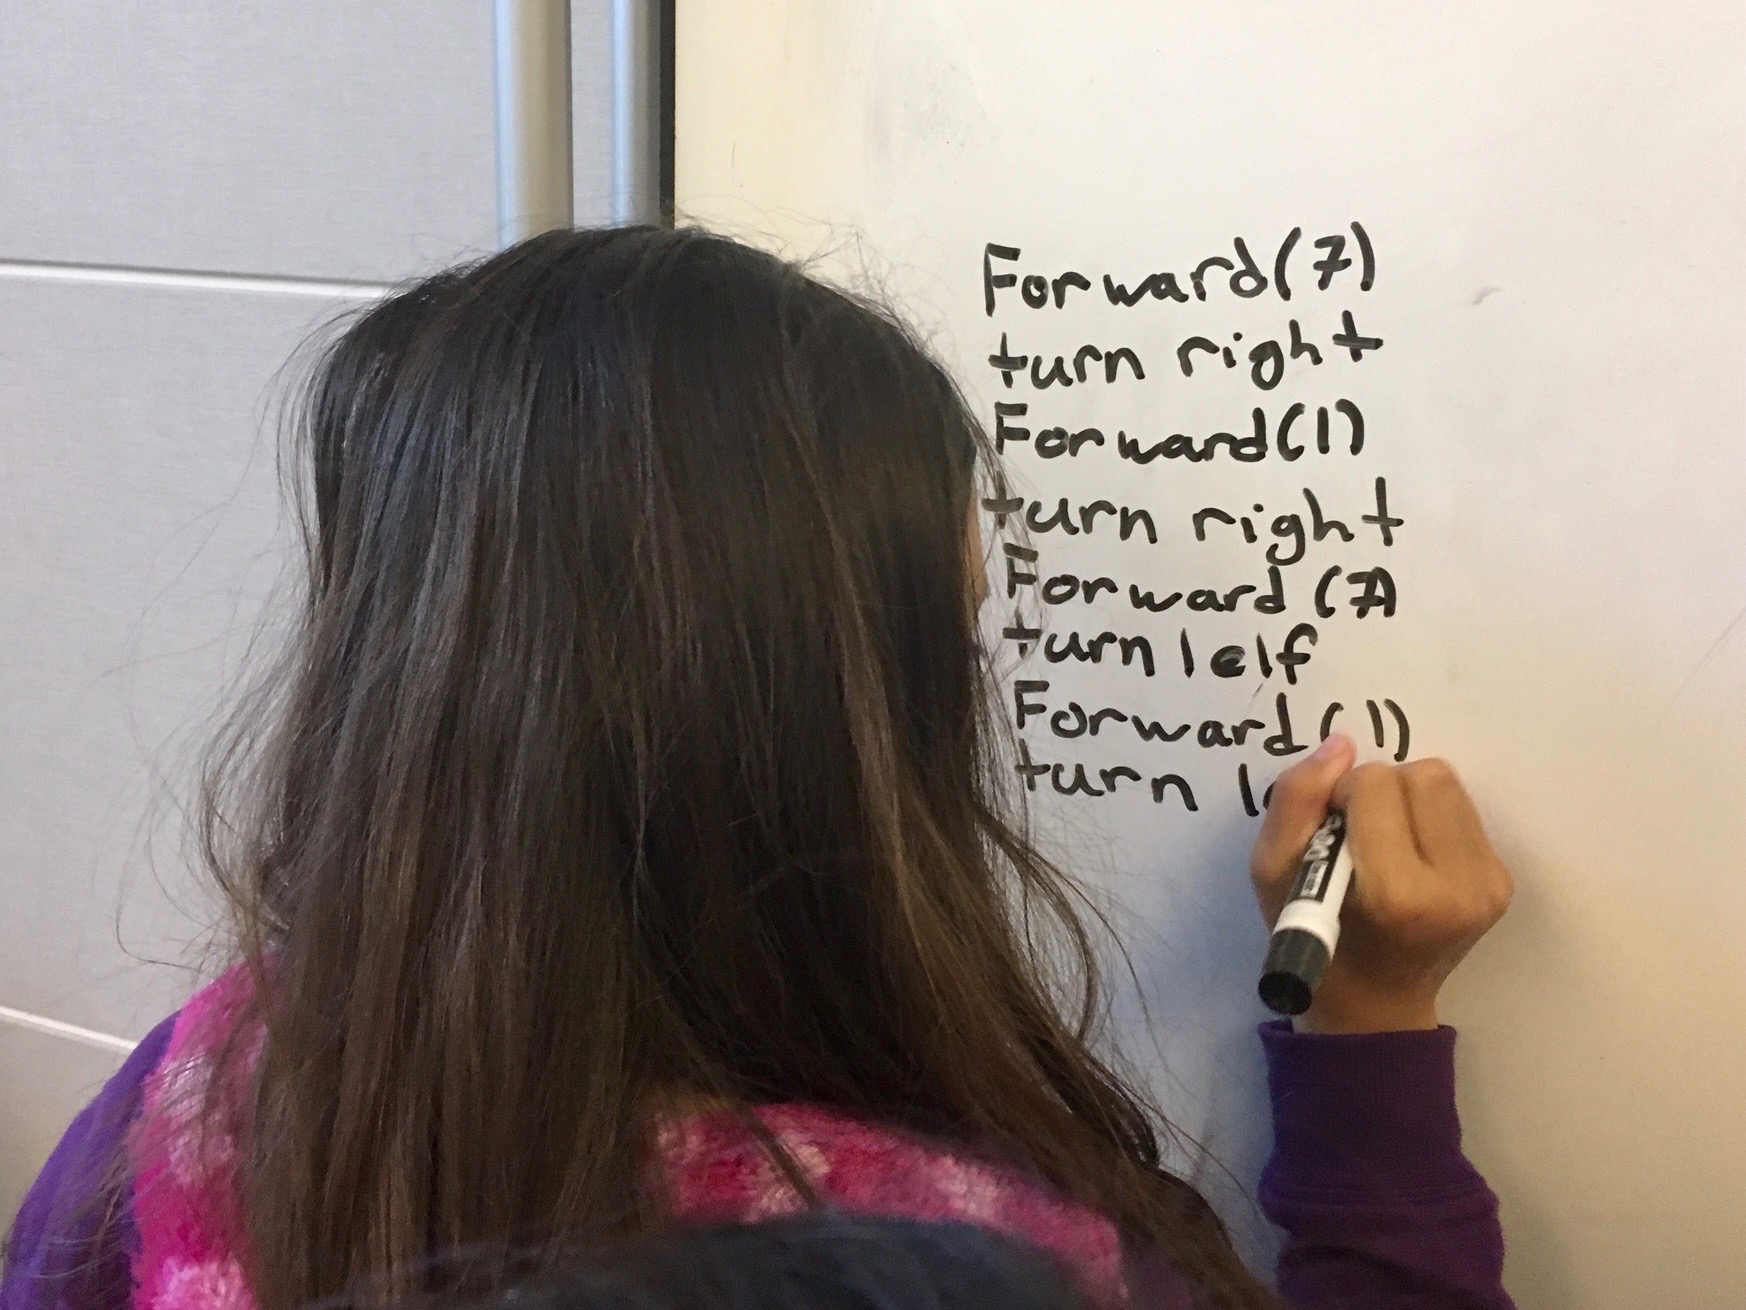 Forward(7)
turn right
Forward(1)
turn right
Forward (7)
turn lelf
Forward(1)
turn